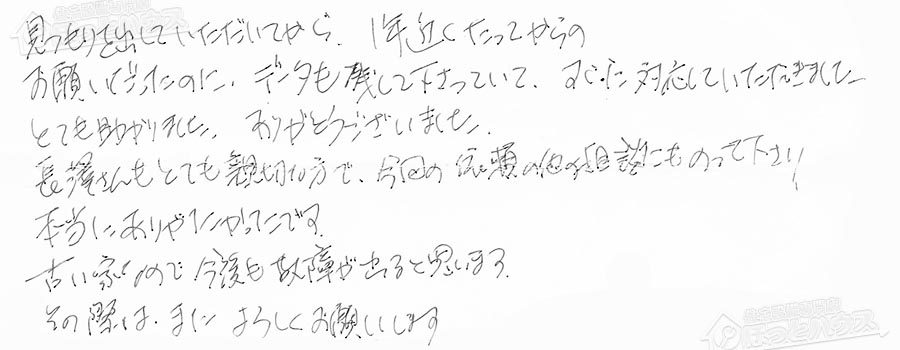 見つもりを出していただいてから、1年近くたってからの
お願いだったのに、データも残して下さっていて、すぐに対応していただきました
とても助かりました。ありがとうございました。
長澤さんもとても親切な方で、今回の依頼の他の相談にものって下さり
本当にありがたかったです。
古い家なので今後も故障が出ると思います。
その際は、またよろしくお願いします
ほっとハウス